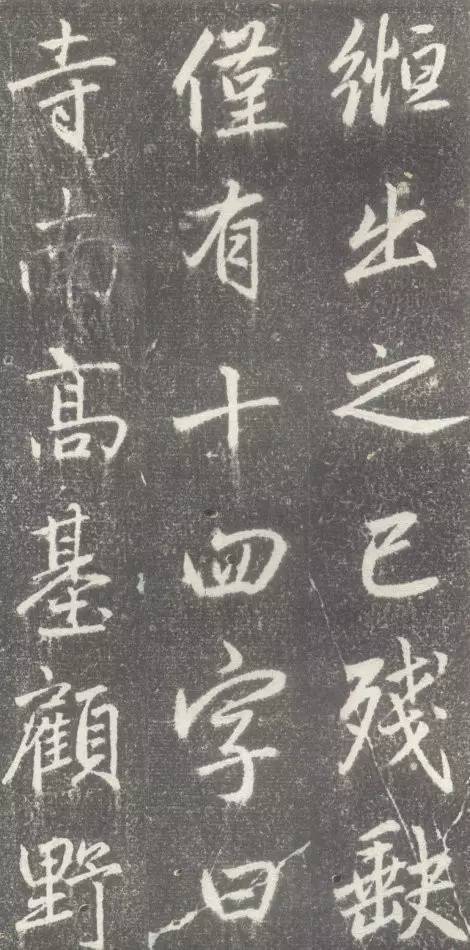 縆出之已残缺
僅有十四字曰
寺南髙基顧野